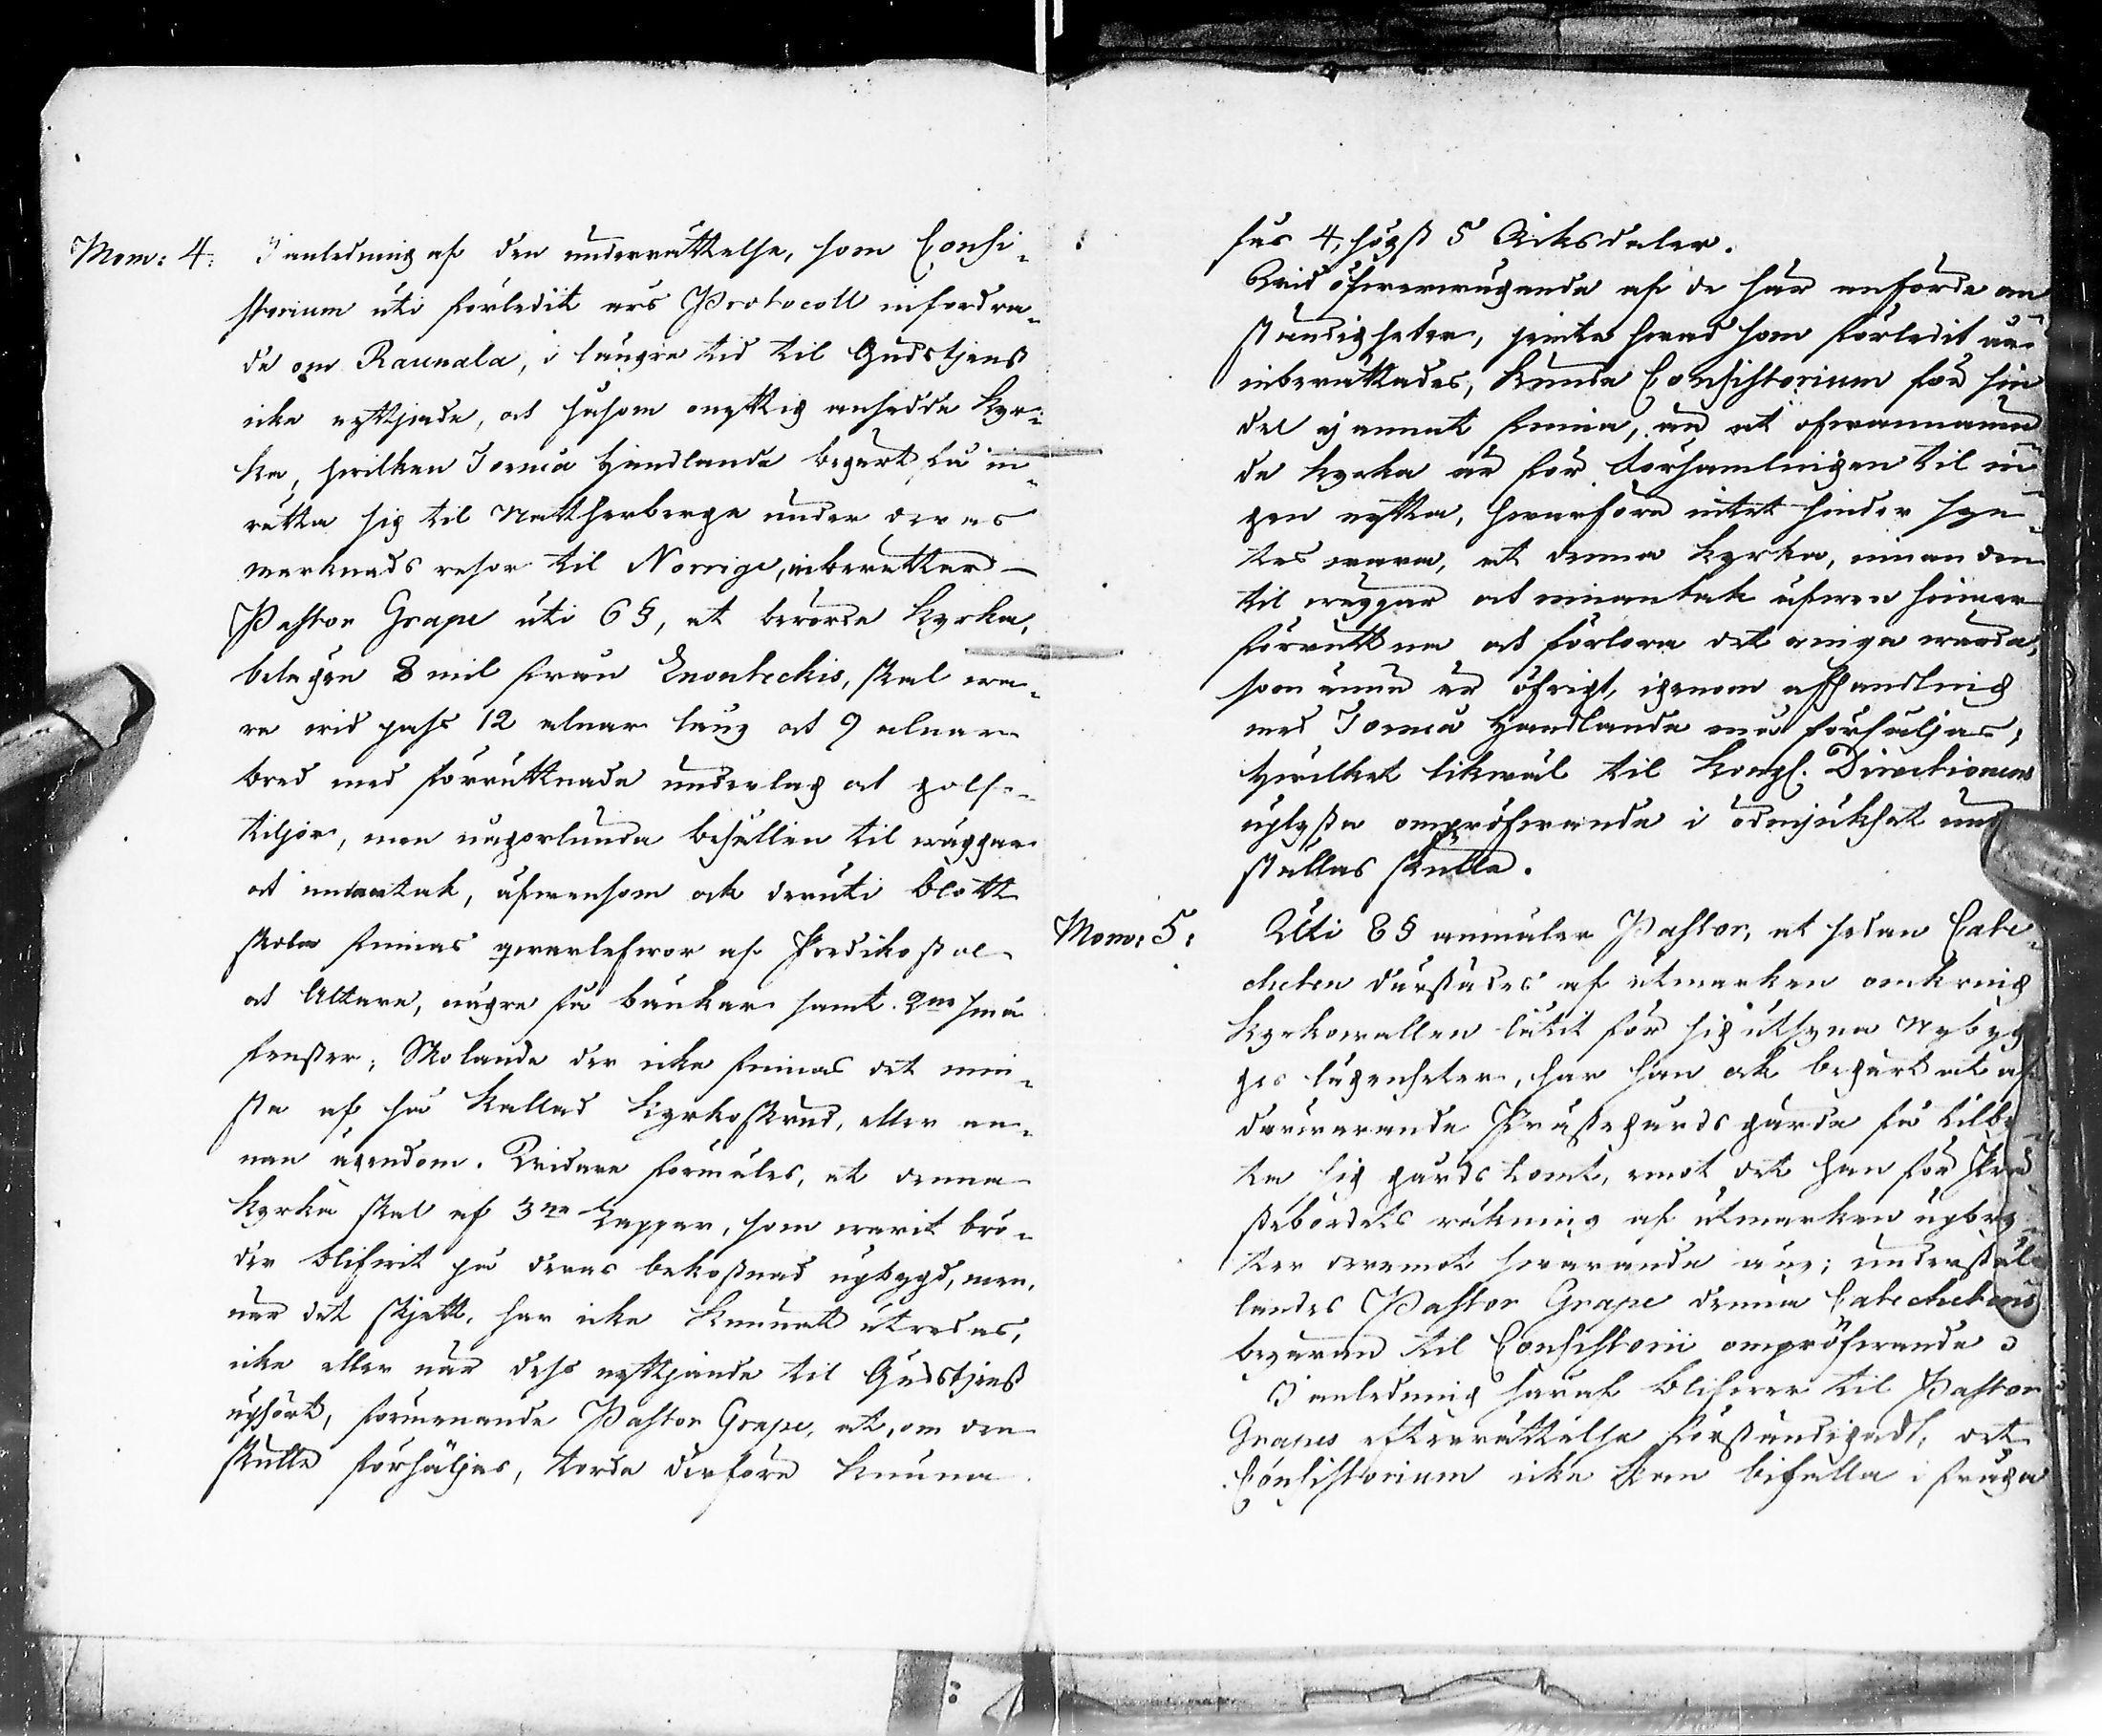 Mom: 4. I anledning af den underrättelse, som Consi-
storium uti förledit års Protocoll infordra-
de om Raunala, i längre tid til Gudstjenst
icke nyttjade, och såsom onyttig ansedde Kyr-
ka, hwilken Torneå Handlande begärt få in-
rätta sig til Nattherberge under deras
marknads resor til Norrige, inberättar
Pastor Grape uti 6 §, at berörde Kyrka,
belägen 8 mil från Enontekis, skal wa-
ra wid pass 12 alnar lång och 9 alnar
bred med förruttnade underlag och golf-
tiljor, men någorlunda behållen til wäggar
och innantak, äfwensom ock deruti blott
skola finnas qwarlefwor af Predikostol
och Altare, några få bänkar samt 2ne små
fenster; Skolande der icke finnas det min-
sta af så kallad Kyrkoskrud, eller an-
nan ägendom. Widare förmäles, at denna
Kyrka skal af 3ne Lappar, som warit brö-
der blifwit på deras bekostnad upbygd, men,
när det skjett, har icke kunnat utredas,
icke eller när dess nyttjande til Gudstjenst
uphört, förmenande Pastor Grape, at, om den
skulle försäljas, torde derföre kunna
fås 4, högst 5 Riksdaler.
Wid öfwerwägande af de här anförde om-
ständigheter, jemte hwad som förledit år
inberättades, kunde Consistorium för sin
del ej annat finna, än at ofwannämn-
de Kyrka är för Församlingen til in-
gen nytta, hwarföre intet hinder syn-
tes wara, at denna Kyrka, innan den
til wäggar och innantak äfwen hinner
förruttna och förlora det ringa wärde,
som ännu är öfrigt, igenom afhandling
med Torneå Handlande må försäljas;
Hwilket likwäl til Kongl. Directionens
uplysta ompröfwande i ödmjukhet un
ställas skulle.
Mom: 5: Uti 8 § anmäler Pastor, at sedan Cate-
cheten därstädes af utmarken omkring
Kyrkowallen låtit för sig utsyna Nybyg-
ges lägenheter, har han ock begärt at af
darwarande Prästegårds gärde få tilby-
ta sig gårdstomt, emot det han för Prä-
stebordets räkning af utmarken upbru-
kar deremot swarande äng; underställ-
landes Pastor Grape denna Catechetens
begäran til Consistorii ompröfwande
I anledning häraf blifwer til Pastor
Grapes efterrättelse förständigadt, det
Consistorium icke kan bifalla i fråga